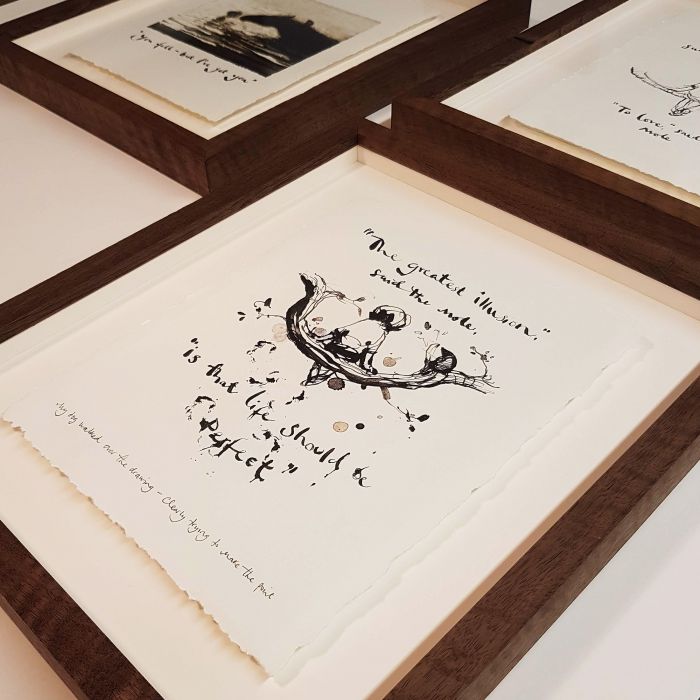 "you fell - but I've got you"
"To love," said
mole
"The greatest illusion,"
said the mole,
"is that life should be
perfect"
my dog walked over the drawing - clearly trying to make the point